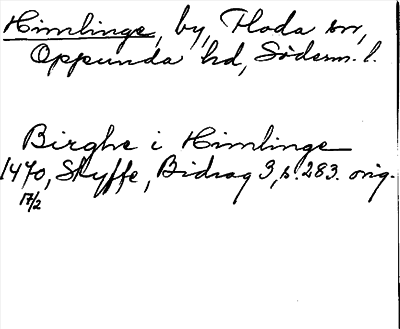 Himlinge, by, Floda sn,
Oppunda hd, Söderm. l.
Birghe i Himlinge
1470, Styffe, Bidrag 3, s. 283. orig.
17/2